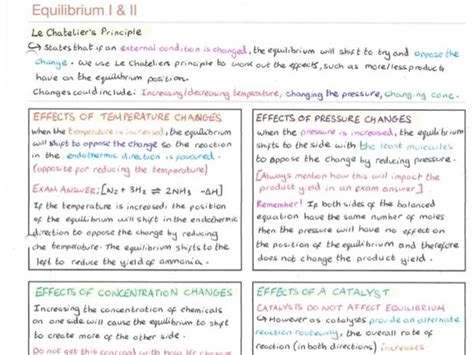 Equilibrium I & II
Le Chatelier's Principle
↳ States that if an external condition is changed, the equilibrium will shift to try and oppose the
change. We use Le Chateliers principle to work out the effects, such as more/less products
have on the equilibrium position.
Changes could include: Increasing/decreasing temperature, changing the pressure, changing conc.
EFFECTS OF TEMPERATURE CHANGES
when the temperature is increased, the equilibrium
will shift to oppose the change so the reaction
in the endothermic direction is favoured.
(opposite for reducing the temperature)
EXAM ANSWER: [N2 + 3H2 ⇌ 2NH3 -ΔH]
If the temperature is increased, the position
of the equilibrium will shift in the endothermic
direction to oppose the change by reducing
the temperature. The equilibrium shifts to the
left to reduce the yield of ammonia.
EFFECTS OF PRESSURE CHANGES
when the pressure is increased, the equilibrium
shifts to the side with the least molecules
to oppose the change by reducing pressure.
[Always mention how this will impact the
product yield in an exam answer]
Remember! If both sides of the balanced
equation have the same number of moles
then the pressure will have no effect on
the position of equilibrium and therefore
does not change the product yield.
EFFECTS OF CONCENTRATION CHANGES
Increasing the concentration of chemicals
on one side will cause the equilibrium to shift
to create more of the other side.
Do not get this
EFFECTS OF A CATALYST
CATALYSTS DO NOT AFFECT EQUILIBRIUM
↳ However as catalyses provide an alternate
reaction routeway, the overall rate of
reaction (in both directions) increases